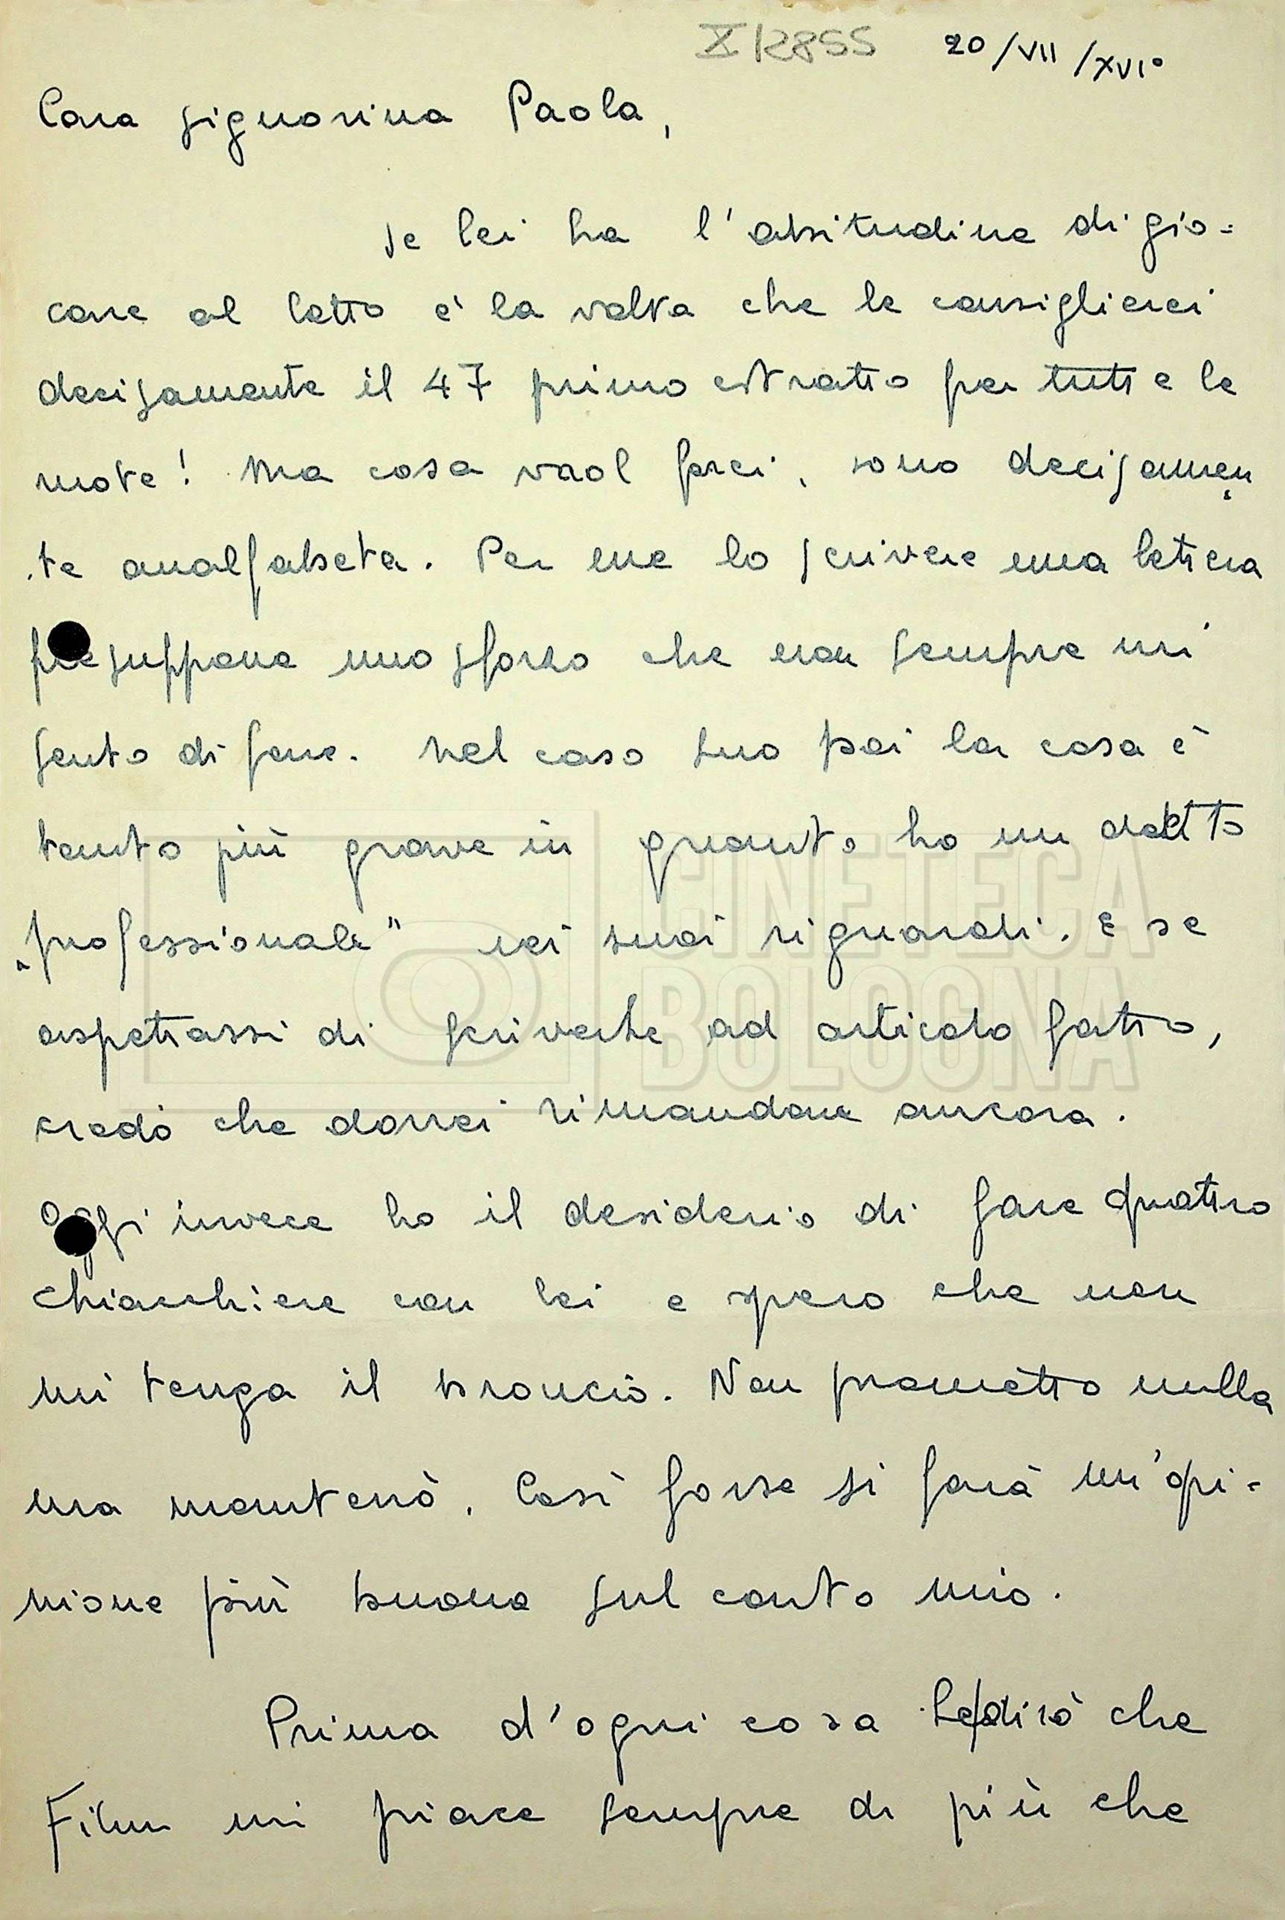 X/2855 20/VII/XVI°
Cara signorina Paola,
se lei ha l'abitudine di gio=
care al lotto è la volta che le consiglierei
decisamente il 47 primo estratto per tutte le
ruote! Ma cosa vuol farci, sono decisamen
te analfabeta. Per me lo scrivere una lettera
presuppone uno sforzo che non sempre mi
sento di fare. Nel caso suo poi la cosa è
tanto più grave in quanto ho un debito
"professionale" nei suoi riguardi. E se
aspettassi di scriverle ad articolo fatto,
credo che dovrei rimandare ancora.
Oggi invece ho il desiderio di fare quattro
chiacchiere con lei e spero che non
mi tenga il broncio. Non prometto nulla
ma manterrò. Così forse si farà un'opi=
nione più buona sul conto mio.
Prima d'ogni cosa Le dirò che
Film mi piace sempre di più che
CINETECA
BOLOGNA